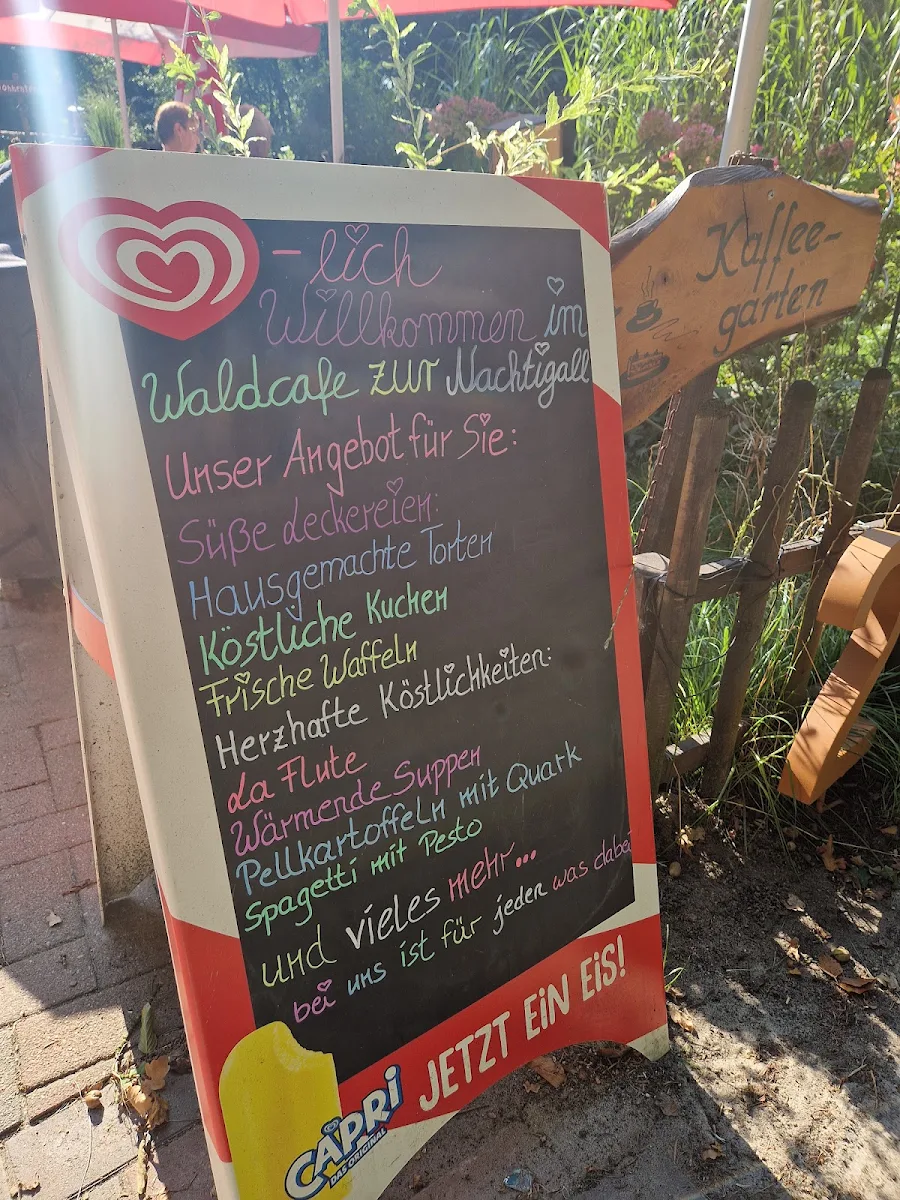 - lich
Willkommen im
Waldcafe zur Nachtigall
Unser Angebot für Sie:
Süße Leckereien:
Hausgemachte Torten
Köstliche Kuchen
Frische Waffeln
Herzhafte Köstlichkeiten:
La Flute
Wärmende Suppen
Pellkartoffeln mit Quark
Spagetti mit Pesto
und vieles mehr...
bei uns ist für jeden was dabei
JETZT EiN EiS!
CAPRi
DAS ORIGINAL
Kaffee-
garten